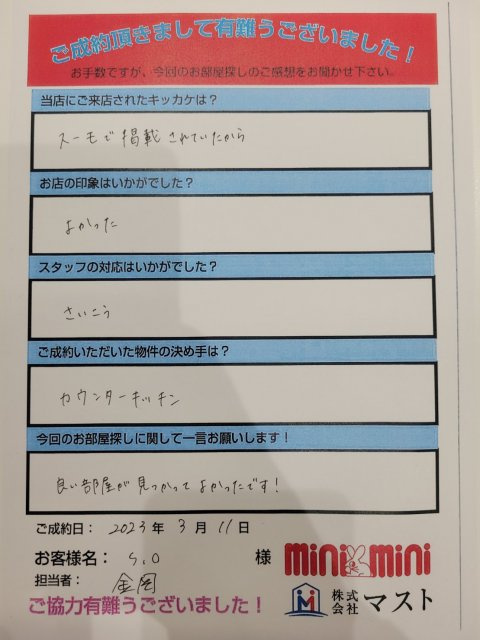 ご成約頂きまして有難うございました!
お手数ですが、今回のお部屋探しのご感想をお聞かせ下さい。
当店にご来店されたキッカケは?
スーモで掲載されていたから
お店の印象はいかがでした?
よかった
スタッフの対応はいかがでした?
さいこう
ご成約いただいた物件の決め手は?
カウンターキッチン
今回のお部屋探しに関して一言お願いします!
良い部屋が見つかってよかったです!
ご成約日: 2023年 3月 11日
お客様名: S.O 様
mini mini
担当者: 金岡
株式会社 マスト
ご協力有難うございました!